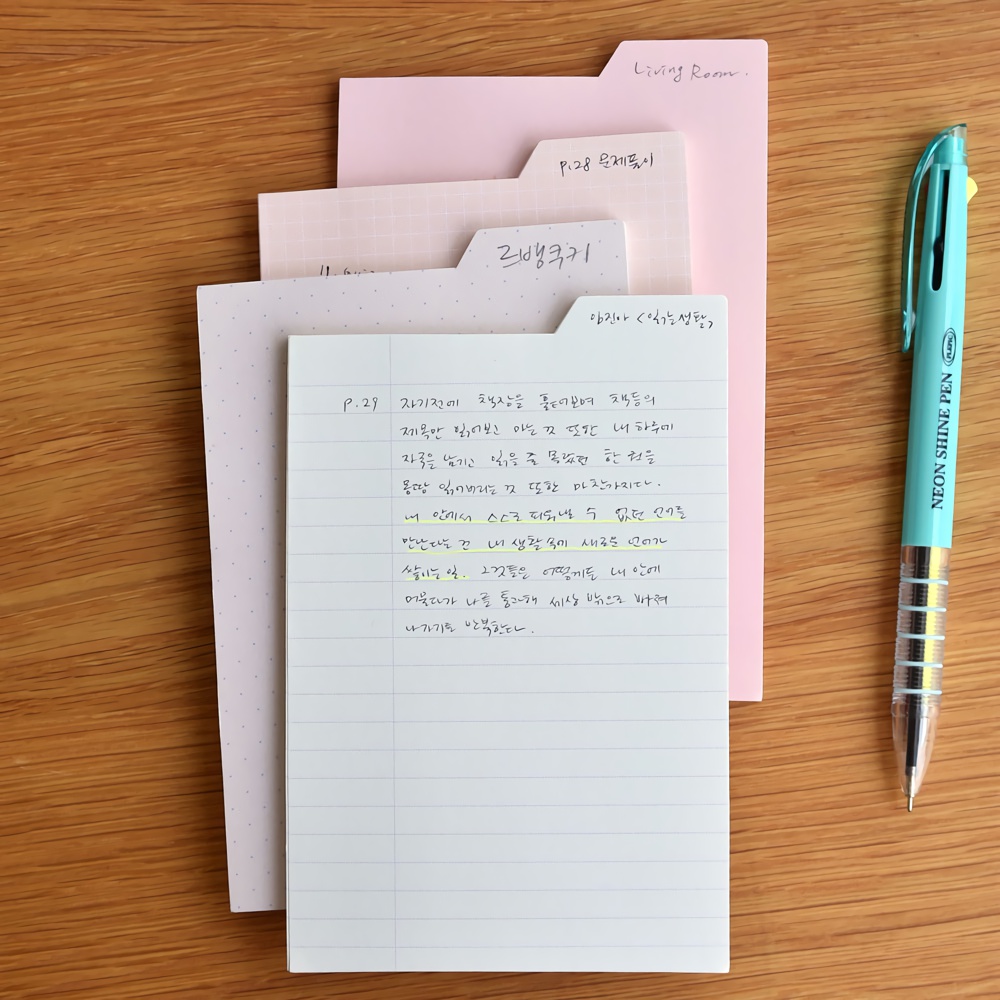 Living Room.
p.28 문제풀이
르뱅쿠키
임진아 <읽는생활>
p.29 자기전에 책장을 훑어보며 책등의
제목만 읽어보고 마는 것 또한 내 하루에
자국을 남기고 읽을 줄 몰랐던 한 권을
몽땅 읽어버리는 것 또한 마찬가지다.
내 안에서 스스로 피워낼 수 없던 언어를
만난다는 건 내 생활 속에 새로운 언어가
쌓이는 일. 그것들은 어떻게든 내 안에
머물다가 나를 통과해 세상 밖으로 빠져
나가기를 반복한다.
NEON SHINE PEN